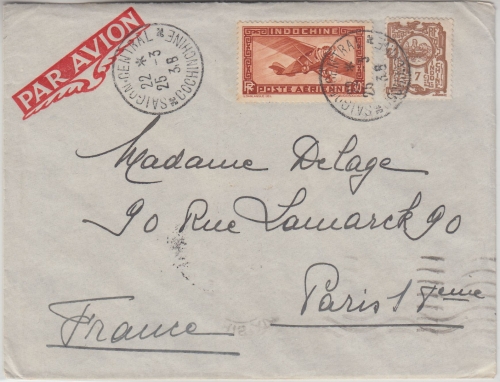 PAR AVION
SAIGON-CENTRAL
22 *
25-3
38
COCHINCHINE
INDOCHINE
POSTE AERIENNE
Madame DeLage
90 Rue Lamarck 90
Paris 17eme
France